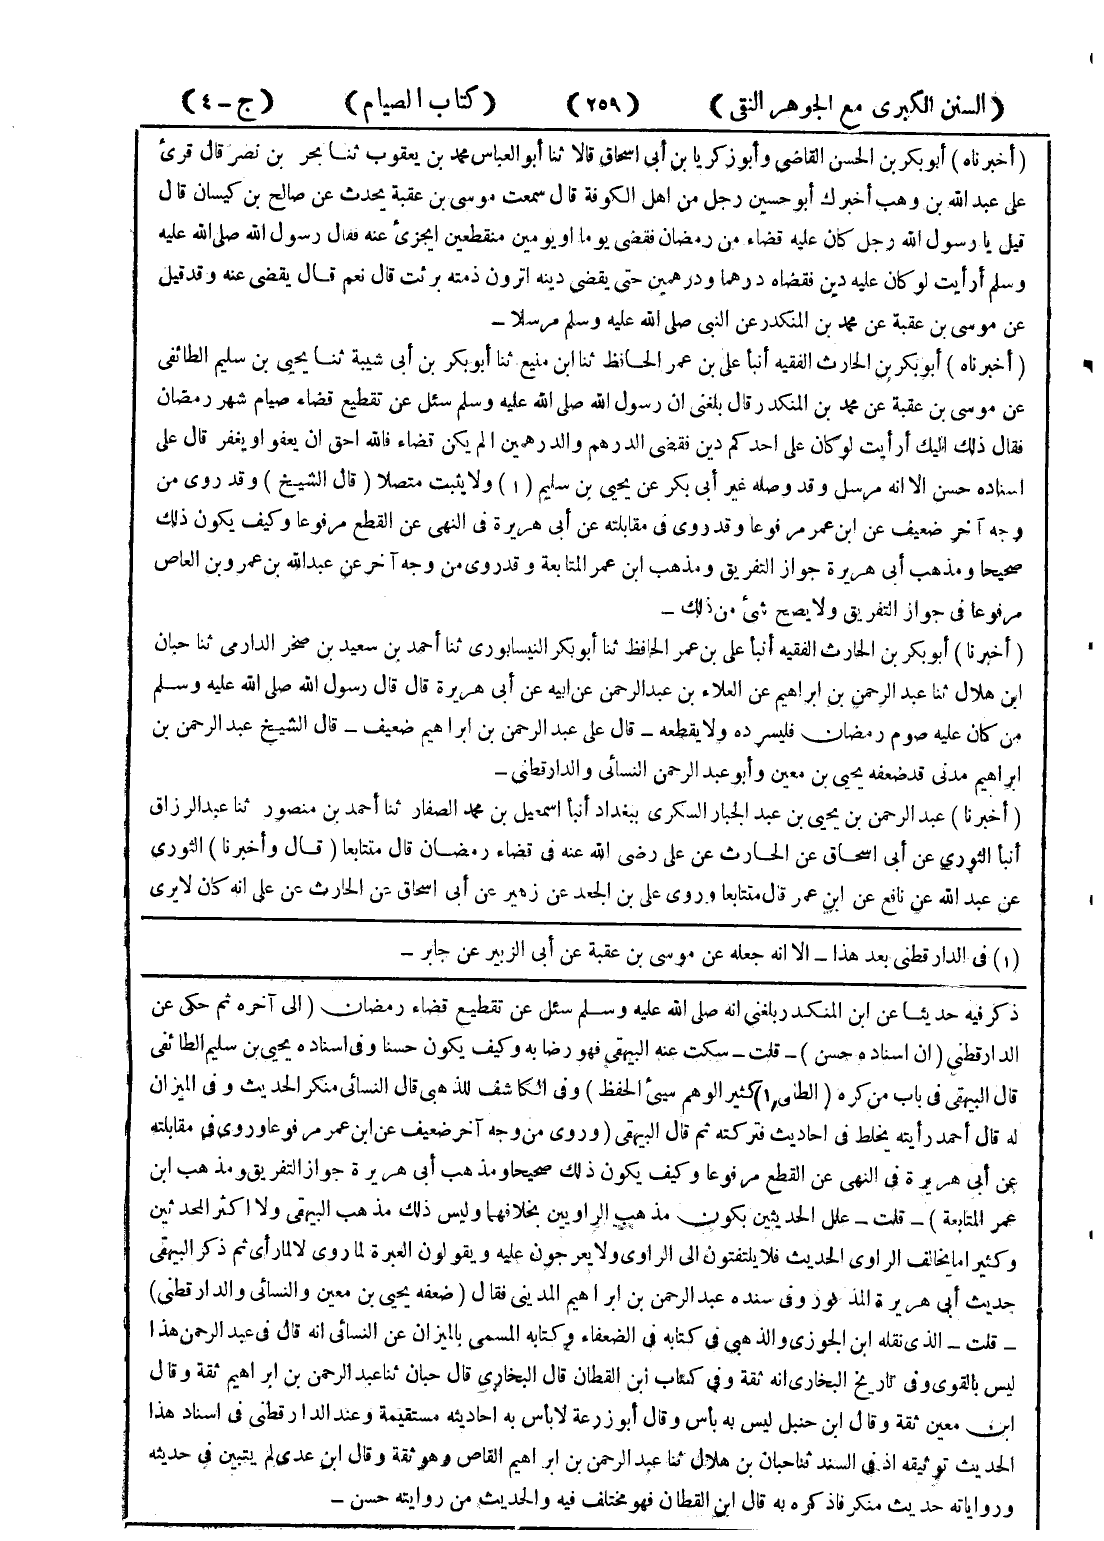 (السنن الكبرى مع الجوهر النقى) (٢٥٩) (كتاب الصيام) (ج-٤)
(أخبرناه) أبوبكر بن الحسن القاضي وأبوزكريا بن أبى اسحاق قالا ثنا أبو العباس محمد بن يعقوب ثنا بحر بن نصر قال قرئ
على عبد الله بن وهب أخبرك أبو حسين رجل من اهل الكوفة قال سمعت موسى بن عقبة يحدث عن صالح بن كيسان قال
قيل يا رسول الله رجل كان عليه قضاء من رمضان فقضى يوما او يومين منقطعين ايجزئ عنه فقال رسول الله صلى الله عليه
وسلم أرأيت لو كان عليه دين فقضاه درهما ودرهمين حتى يقضي دينه اترون ذمته برئت قال نعم قال يقضى عنه وقدقيل
عن موسى بن عقبة عن محمد بن المنكدر عن النبي صلى الله عليه وسلم مرسلا –
(أخبرناه) أبوبكر بن الحارث الفقيه أنبأ على بن عمر الحافظ ثنا ابن منيع ثنا أبوبكر بن أبى شيبة ثنا يحيى بن سليم الطائفى
عن موسى بن عقبة عن محمد بن المنكدر قال بلغنى ان رسول الله صلى الله عليه وسلم سئل عن تقطيع قضاء صيام شهر رمضان
فقال ذلك اليك أرأيت لو كان على احدكم دين فقضى الدرهم والدرهمين الم يكن قضاء فالله احق ان يعفو او يغفر قال على
اسناده حسن الا انه مرسل وقد وصله غير أبى بكر عن يحيى بن سليم (١) ولا يثبت متصلا (قال الشيخ) وقد روى من
وجه آخر ضعيف عن ابن عمر مرفوعا وقد روى فى مقابلته عن أبى هريرة فى النهى عن القطع مرفوعا وكيف يكون ذلك
صحيحا ومذهب أبى هريرة جواز التفريق ومذهب ابن عمر المتابعة وقدروى من وجه آخر عن عبدالله بن عمرو بن العاص
مرفوعا فى جواز التفريق ولا يصح شئ من ذلك –
(أخبرنا) أبوبكر بن الحارث الفقيه أنبأ على بن عمر الحافظ ثنا أبوبكر النيسابورى ثنا أحمد بن سعيد بن صخر الدارمى ثنا حبان
ابن هلال ثنا عبد الرحمن بن ابراهيم عن العلاء بن عبدالرحمن عن ابيه عن أبى هريرة قال قال رسول الله صلى الله عليه وسلم
من كان عليه صوم رمضان فليسرده ولا يقطعه – قال على عبد الرحمن بن ابراهيم ضعيف – قال الشيخ عبد الرحمن بن
ابراهيم مدنى قدضعفه يحيى بن معين وأبو عبد الرحمن النسائى والدارقطنى –
(أخبرنا) عبد الرحمن بن يحيى بن عبد الجبار السكرى ببغداد أنبأ اسمعيل بن محمد الصفار ثنا أحمد بن منصور ثنا عبدالرزاق
أنبأ الثوري عن أبى اسحاق عن الحارث عن على رضى الله عنه فى قضاء رمضان قال متتابعا (قال وأخبرنا) الثوري
عن عبد الله عن نافع عن ابن عمر قال متتابعا وروى على بن الجعد عن زهير عن أبى اسحاق عن الحارث عن على انه كان لايرى
(١) فى الدارقطنى بعد هذا – الا انه جعله عن موسى بن عقبة عن أبى الزبير عن جابر –
ذكر فيه حديثا عن ابن المنكدر بلغني انه صلى الله عليه وسلم سئل عن تقطيع قضاء رمضان (الى آخره ثم حكى عن
الدارقطني (ان اسناده حسن) – قلت – سكت عنه البيهقى فهو رضا به وكيف يكون حسنا وفى اسناده يحيى بن سليم الطائفى
قال البيهقى فى باب من كره (الطافى ١) كثير الوهم سيئ الحفظ) وفى الكاشف للذهبى قال النسائى منكر الحديث وفى الميزان
له قال أحمد رأيته يخلط فى احاديث فتركته ثم قال البيهقى (وروى من وجه آخر ضعيف عن ابن عمر مرفوعا وروى فى مقابلته
عن أبى هريرة فى النهى عن القطع مرفوعا وكيف يكون ذلك صحيحا ومذهب أبى هريرة جواز التفريق ومذهب ابن
عمر المتابعة) – قلت – علل الحديثين بكون مذهب الراويين بخلافهما وليس ذلك مذهب البيهقى ولا اكثر المحدثين
وكثيرا ما يخالف الراوى الحديث فلا يلتفتون الى الراوى ولا يعرجون عليه ويقولون العبرة لما روى لا لما رأى ثم ذكر البيهقى
حديث أبى هريرة المذكور وفى سنده عبدالرحمن بن ابراهيم المديني فقال (ضعفه يحيى بن معين والنسائى والدارقطنى)
– قلت – الذى نقله ابن الجوزى والذهبي فى كتابه فى الضعفاء وكتابه المسمى بالميزان عن النسائى انه قال فى عبد الرحمن هذا
ليس بالقوى وفى تاريخ البخارى انه ثقة وفي كتاب ابن القطان قال البخاري قال حبان ثنا عبد الرحمن بن ابراهيم ثقة وقال
ابن معين ثقة وقال ابن حنبل ليس به بأس وقال أبو زرعة لا بأس به احاديثه مستقيمة وعند الدارقطنى فى اسناد هذا
الحديث توثيقه اذ فى السند ثنا حبان بن هلال ثنا عبد الرحمن بن ابراهيم القاص وهو ثقة وقال ابن عدى لم يتبين فى حديثه
ورواياته حديث منكر فاذكره به قال ابن القطان فهو مختلف فيه والحديث من روايته حسن –